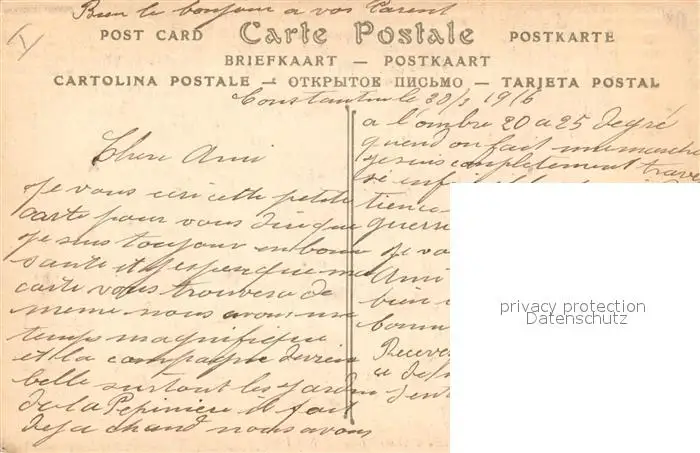 Bien le bonjour a vos Parent
POST CARD Carte Postale POSTKARTE
BRIEFKAART — POSTKAART
CARTOLINA POSTALE — ОТКРЫТОЕ ПИСЬМО — TARJETA POSTAL
Constantine le 28/3 1916
Cher Ami
Je vous ecri cette petite
carte pour vous dire que
je suis toujour en bonne
sante et j'espere que ma
carte vous trouvera de
meme nous avons une
temps magnifique
et la campagne devien
belle surtout les jardin
de la Pepiniere il fait
deja chaud nous avons
a l'ombre 20 a 25 degré
quand on fait une marche
je suis completement trave
sé
tience
guerre
Je vo
Ami
bien
bonn
Recevez
privacy protection
Datenschutz